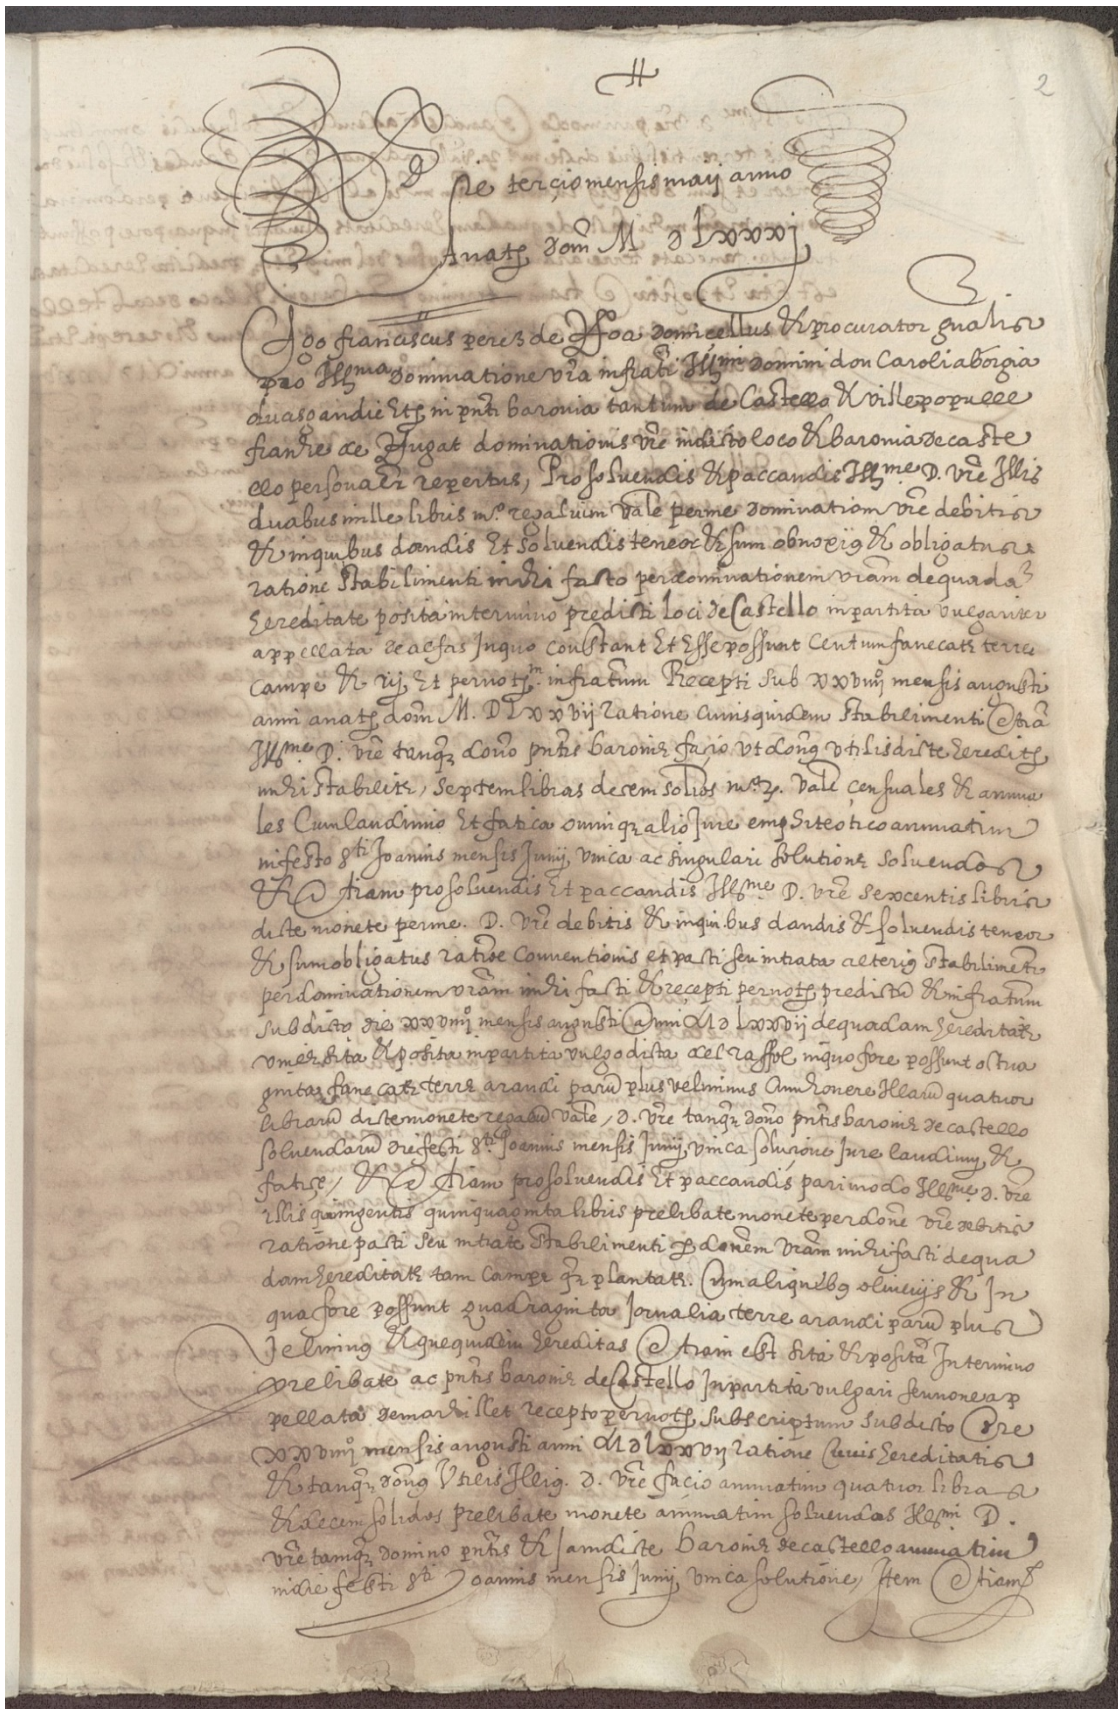 2
Die tercio mensis maij anno
A natt. dom. M D Lxxxj
Ego franciscus perez de Roa domicellus & procurator gnalis
pro Illma dominatione vra infrati Illmi domini don Caroli a borgia
ducas gandie Ett. in pnti baronia tantum de Castello & ville popule
franche de Rugat dominationis vre in dicto loco & baronia de caste
llo personalr repertus, Pro soluendis & paccandis Illme. D. vre Illis
duabus mille libris me. regalium vale. per me dominationi vre debitis
& in quibus dandis Et soluendis teneor & sum obnoxius & obligatus
ratione stabilimenti michi facto per dominationem vram de quada
hereditate posita in termino predicti loci de Castello in partita vulgariter
appellata de alfas In quo constant Et Esse possunt Centum fanecate terre
campe & Et per nott.m infratum Recepti sub xxviiij mensis augusti
anni a natt. dom. M. D Lxxvij ratione cuiusquidem stabilimenti Etia
Illme. D. vre tanq. dono pntis baronie facio vt dons vtilis dicte heredit.
michi stabilite, septem libras decem solidos me. r. vale censuales & annua
les Cum laudimio Et fatica omniq. alio Jure emphiteotico annuatim
in festo sti Joannis mensis Junij, vnica ac singulari solutione soluendos
& Etiam pro soluendis Et paccandis Illme D. vre sexcentis libris
dicte monete per me. D. vre debitis & in quibus dandis & soluendis teneor
& sum obligatus ratione conventionis et pacti seu intrata alterius stabilimenti
per dominationem vram michi facti & recepti per nott. predictu & infratum
sub dicto die xxviiij mensis augusti anni M D lxxvij de quadam hereditate
sita & posita in partita vulgo dicta del raffol in quo fore possunt octua
ginta fanecate terre arandi paru plus vel minus Cum honere Illaru quatuor
libraru dicte monete regaliu vale, D. vre tanq. dono pntis baronie de castello
soluendaru die festi sti Joannis mensis Junij, vnica solutione Jure laudimij &
fatice, & Etiam pro soluendis Et paccandis pari modo Illme. D. vre
Illis quingentis quinquaginta libris prelibate monete per done vre debitis
ratione pacti seu intrate stabilimenti p. donem vram michi facti de qua
dam hereditate tam campe q. plantate. Cum aliquibus oliuerijs & In
qua fore possunt quadraginta Jornalia terre arandi paru plus
vel minus & quequidem hereditas Etiam est sita & posita In termino
prelibate ac pntis baronie de Castello In partita vulgari sermone ap
pellata recepto per nott. subscriptum sub dicto die
xxviiij mensis augusti anni M D lxxvij ratione cuius hereditatis
& tanq. dons Vtilis Illis. D. vre facio annuatim quatuor libras
& decem solidos prelibate monete annuatim soluendas Illmi D.
vre tamq. domino pntis & Jamdicte baronie de castello annuatim
in die festi sti Joannis mensis Junij, vnica solutione, Item Etiam